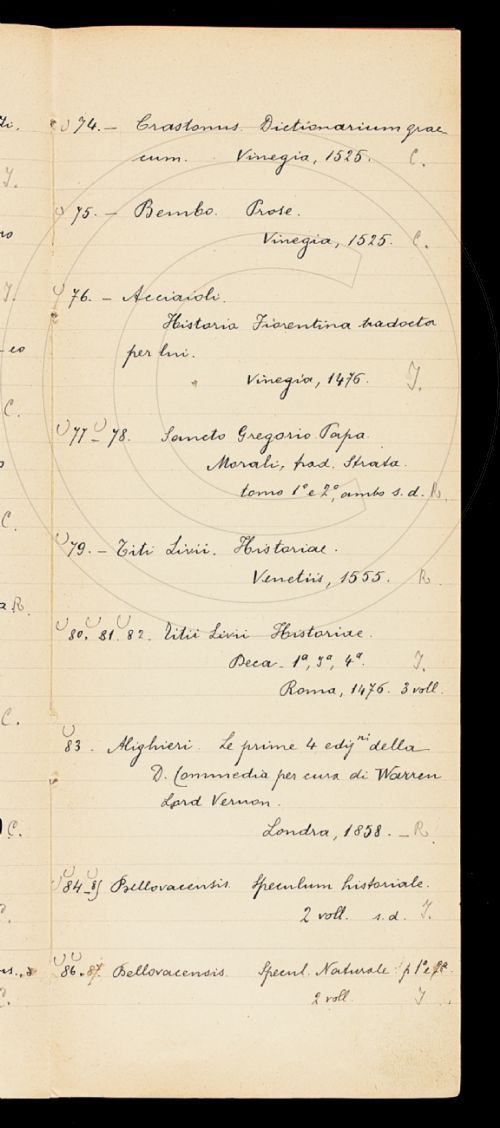 74. — Crastonus. Dictionarium grae
cum. Vinegia, 1525. C.
75. — Bembo. Prose.
Vinegia, 1525. C.
76. — Acciaioli.
Historia Fiorentina tradocta
per lui.
Vinegia, 1476. I.
77 - 78. Sancto Gregorio Papa.
Morali, trad. Strata.
tomo 1º e 2º, ambo s. d. R.
79. — Titi Livii. Historiae.
Venetiis, 1555. R
80. 81. 82. Titii Livii Historiae.
Deca - 1ª, 3ª, 4ª. I.
Roma, 1476. 3 voll.
83. Alighieri. Le prime 4 edij.ni della
D. Commedia per cura di Warren
Lord Vernon.
Londra, 1858. — R.
84-85 Bellovacensis. Speculum historiale.
2 voll. s.d. I.
86.87. Bellovacensis. Specul. Naturale p 1ª e 2ª.
2 voll. I